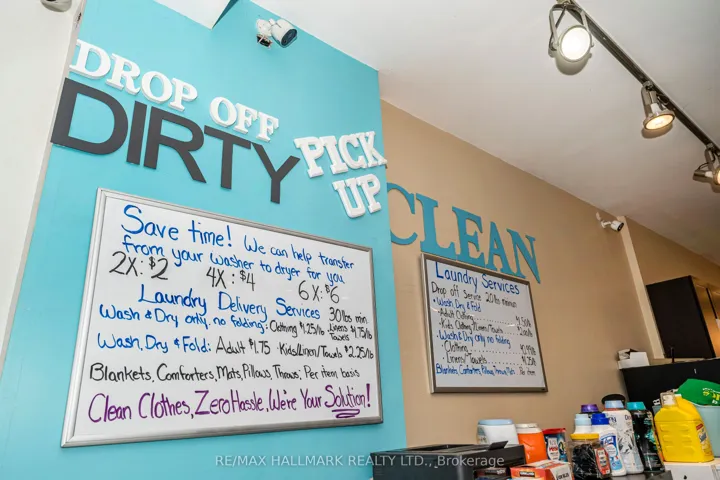 DROP OFF
DIRTY
PICK
UP
CLEAN
Save time! We can help transfer
from your washer to dryer for you
2X: $2 4X: $4 6X: $6
Laundry Delivery Services 30 lbs min
Wash & Dry only, no folding: Clothing $1.25/lb Linens $1.75/lb
Towels
Wash, Dry & Fold: Adult $1.75 Kids/Linen/Towels $2.25/lb
Blankets, Comforters, Mats, Pillows, Throws: Per item basis
Clean Clothes, Zero Hassle, We're Your Solution!
Laundry Services
Drop off Service 20 lbs minimum
• Wash, Dry & Fold
Adult Clothing
Kids Clothing/Linens/Towels
• Wash & Dry only no folding
Clothing
Linens/Towels
Blankets, Comforters, Pillows, Throws, Mats Per item
RE/MAX HALLMARK REALTY LTD., Brokerage